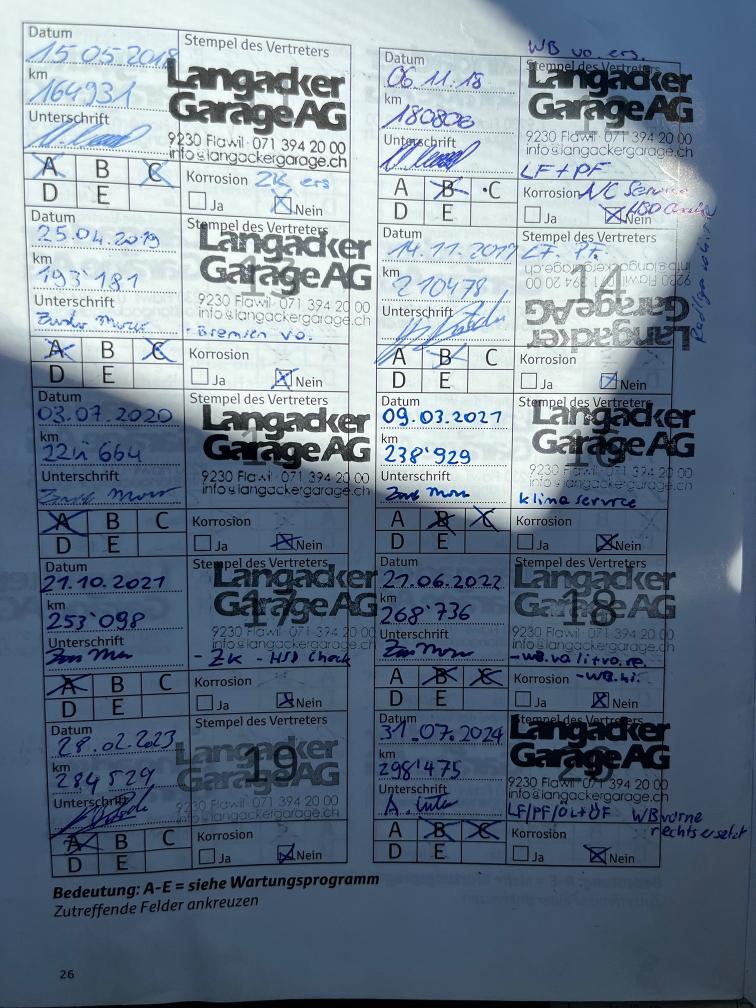 Datum
15.05.2018
km
164931
Unterschrift
Stempel des Vertreters
Langacker
Garage AG
9230 Flawil · 071 394 20 00
info@langackergarage.ch
A B C
D E
Korrosion ZK ers
Ja Nein
WB vo. ers.
Datum
06.11.18
km
180806
Unterschrift
Stempel des Vertreters
Langacker
Garage AG
9230 Flawil · 071 394 20 00
info@langackergarage.ch
LF + PF
A B C
D E
Korrosion
Ja Nein
Datum
25.04.2019
km
193'181
Unterschrift
Stempel des Vertreters
Langacker
Garage AG
9230 Flawil · 071 394 20 00
info@langackergarage.ch
- Bremsen vo.
A B C
D E
Korrosion
Ja Nein
Datum
14.11.2019
km
210478
Unterschrift
Stempel des Vertreters
LF. PF.
14
Langacker
Garage AG
9230 Flawil · 071 394 20 00
info@langackergarage.ch
A B C
D E
Korrosion
Ja Nein
Datum
03.07.2020
km
664
Unterschrift
Stempel des Vertreters
Langacker
Garage AG
9230 Flawil · 071 394 20 00
info@langackergarage.ch
A B C
D E
Korrosion
Ja Nein
Datum
09.03.2021
km
238'929
Unterschrift
Stempel des Vertreters
Langacker
Garage AG
9230 Flawil · 071 394 20 00
info@langackergarage.ch
klimaservice
A B C
D E
Korrosion
Ja Nein
Datum
21.10.2021
km
253'098
Unterschrift
Stempel des Vertreters
17
Langacker
Garage AG
9230 Flawil · 071 394 20 00
info@langackergarage.ch
- ZK - HSD Check
A B C
D E
Korrosion
Ja Nein
Datum
21.06.2022
km
268'736
Unterschrift
Stempel des Vertreters
18
Langacker
Garage AG
9230 Flawil · 071 394 20 00
info@langackergarage.ch
A B C
D E
Korrosion -WB.hi.
Ja Nein
Datum
28.02.2023
km
284529
Unterschrift
Stempel des Vertreters
19
Langacker
Garage AG
9230 Flawil · 071 394 20 00
info@langackergarage.ch
A B C
D E
Korrosion
Ja Nein
Datum
31.07.2024
km
298'475
Unterschrift
Stempel des Vertreters
20
Langacker
Garage AG
9230 Flawil · 071 394 20 00
info@langackergarage.ch
LF/PF/ÖL+ÖF WB vorne
rechts ersetzt
A B C
D E
Korrosion
Ja Nein
Bedeutung: A-E = siehe Wartungsprogramm
Zutreffende Felder ankreuzen
26